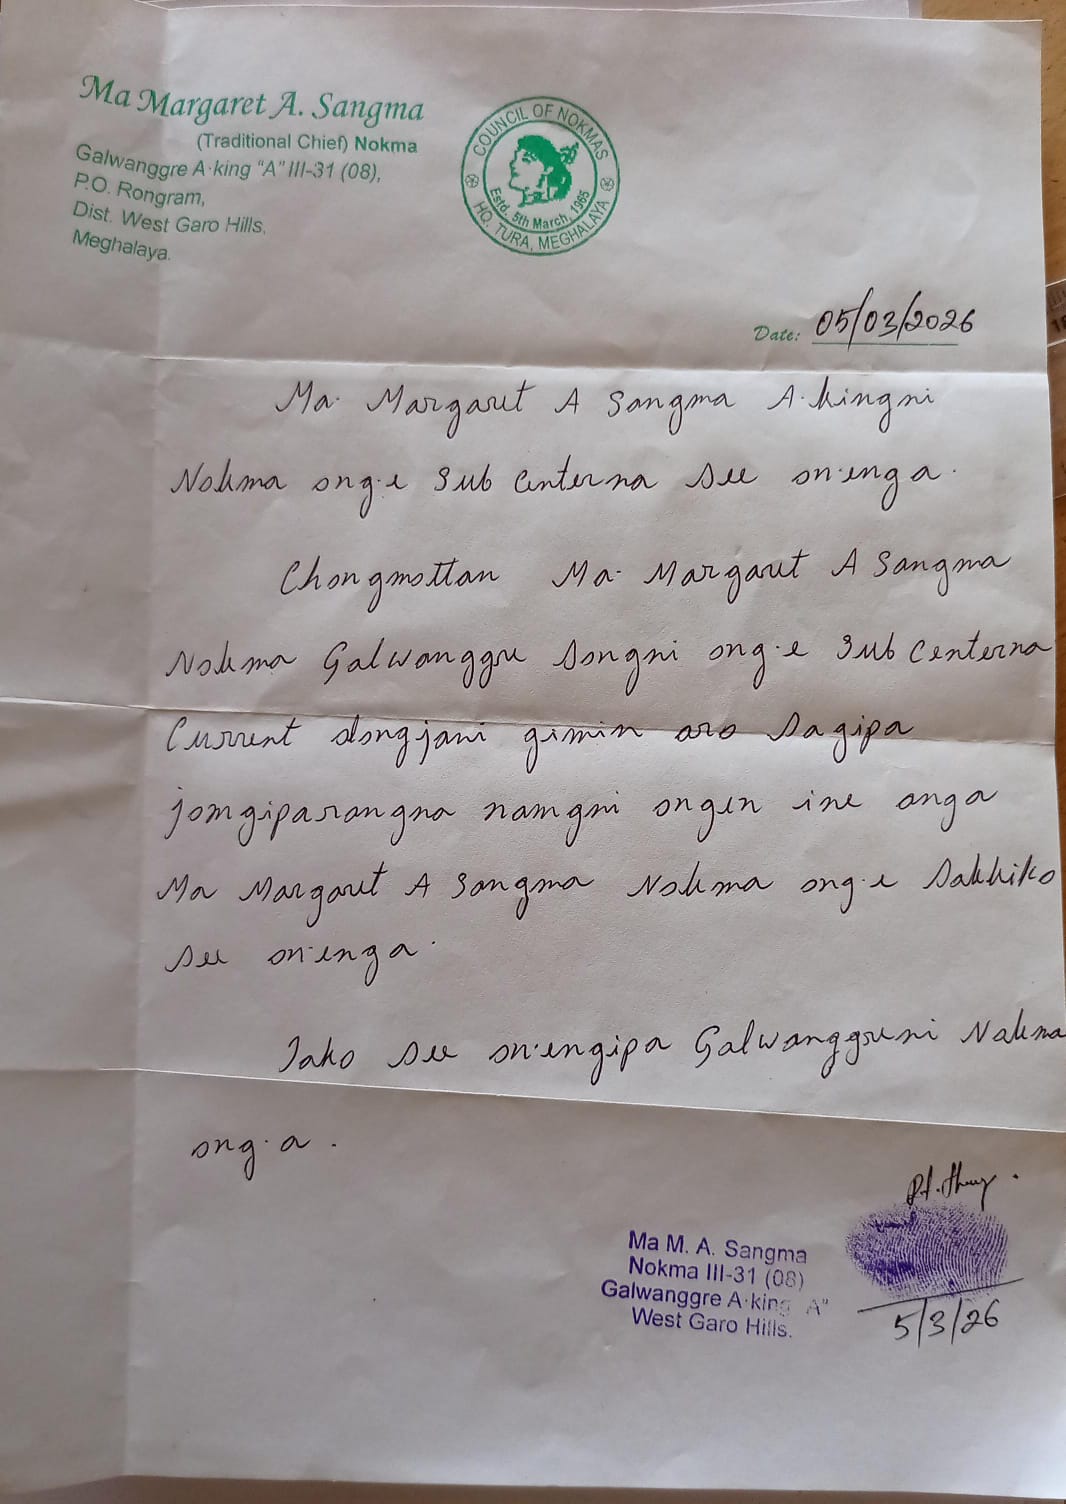 Ma Margaret A. Sangma
(Traditional Chief) Nokma
Galwanggre A·king "A" III-31 (08),
P.O. Rongram,
Dist. West Garo Hills,
Meghalaya.
COUNCIL OF NOKMAS
Estd. 5th March, 1965
HQ. TURA, MEGHALAYA
Date: 05/03/2026
Ma· Margaret A Sangma A·kingni
Nokma ong·e Sub Centerna see on·enga·
Chongmottan Ma· Margaret A Sangma
Nokma Galwanggre songni ong·e Sub Centerna
Current dongjani gimin aro sagipa
jomgiparangna namgni ongen ine anga
Ma Margaret A Sangma Nokma ong·e sakkiko
see on·enga·
Iako see on·engipa Galwanggreni Nokma
ong·a.
Ma M. A. Sangma
Nokma III-31 (08)
Galwanggre A·king "A"
West Garo Hills.
5/3/26